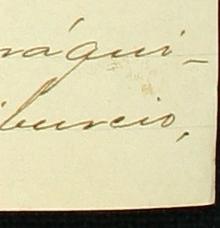 ráqui-
iburcio,